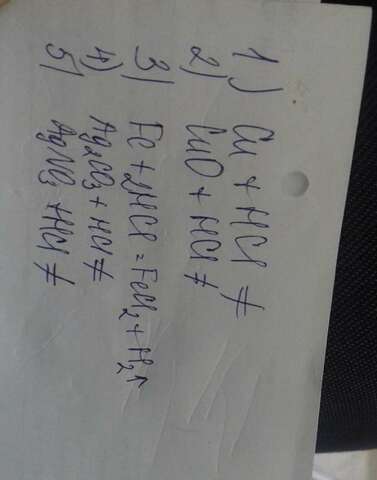 1) Cu + HCl ≠
2) CuO + HCl ≠
3) Fe + 2HCl = FeCl₂ + H₂↑
4) Ag₂CO₃ + HCl ≠
5) AgNO₃ + HCl ≠